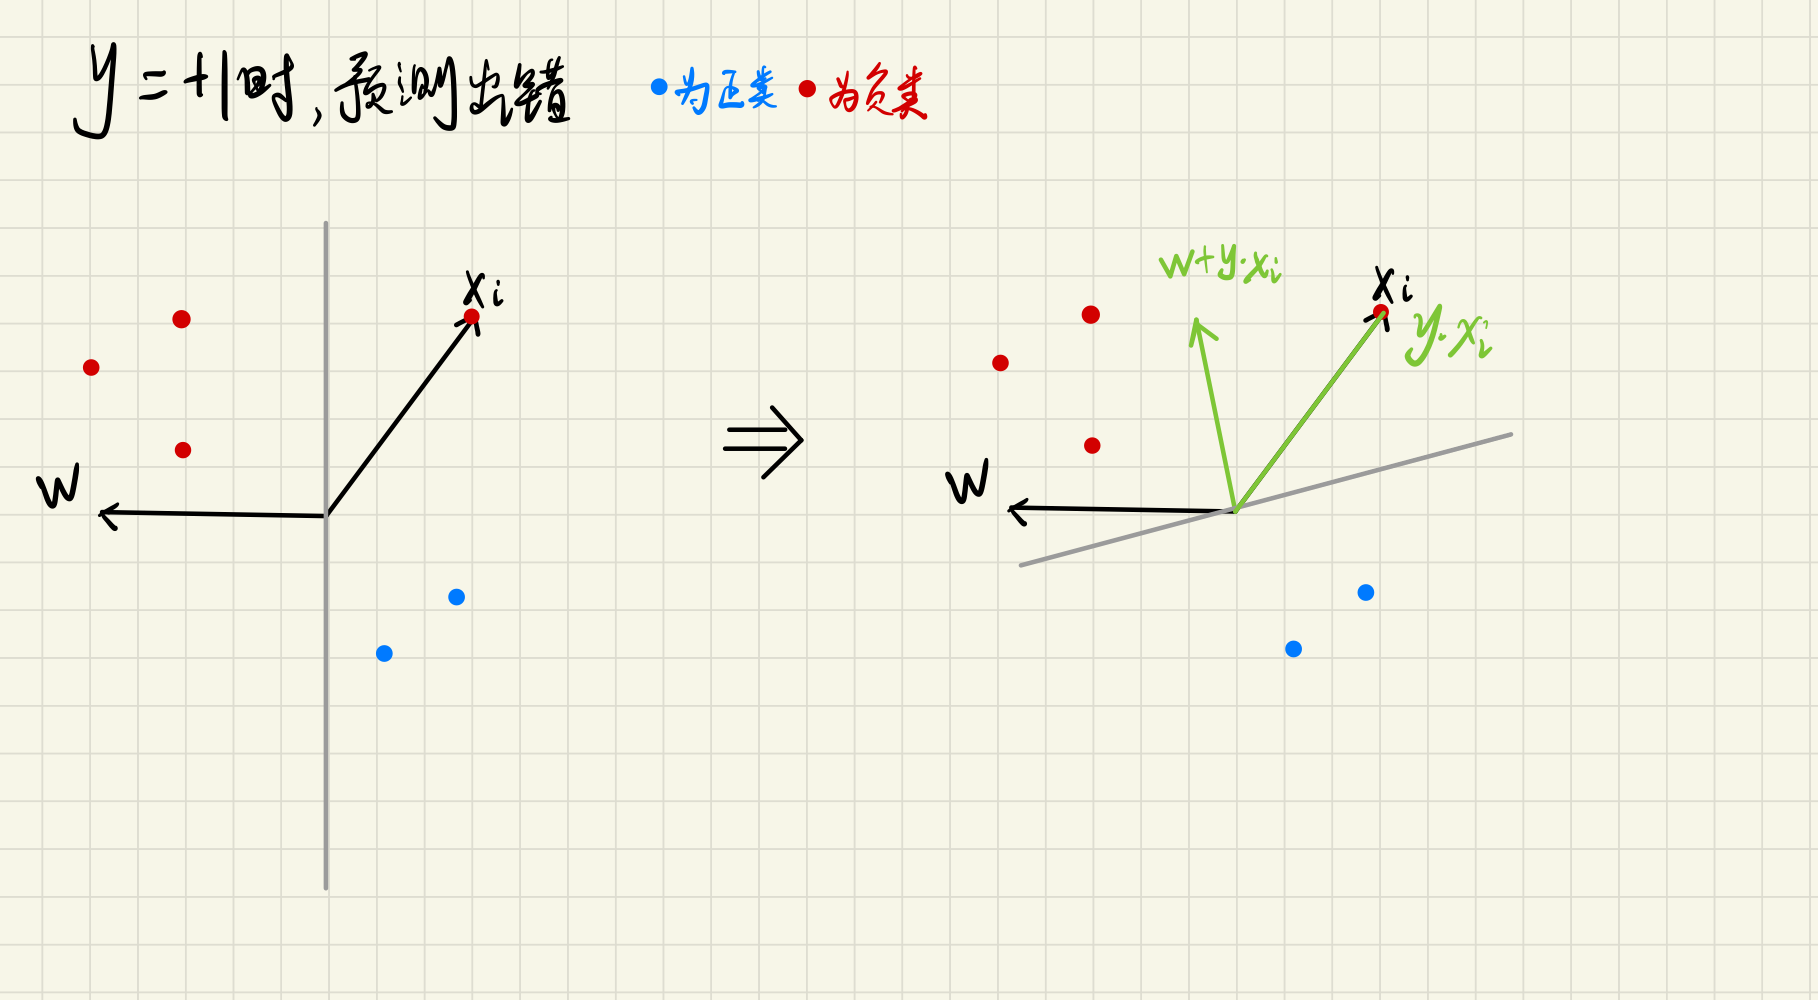 y=+1时,预测出错 为正类 为负类
xi
w
w+y·xi
xi
y·xi
w